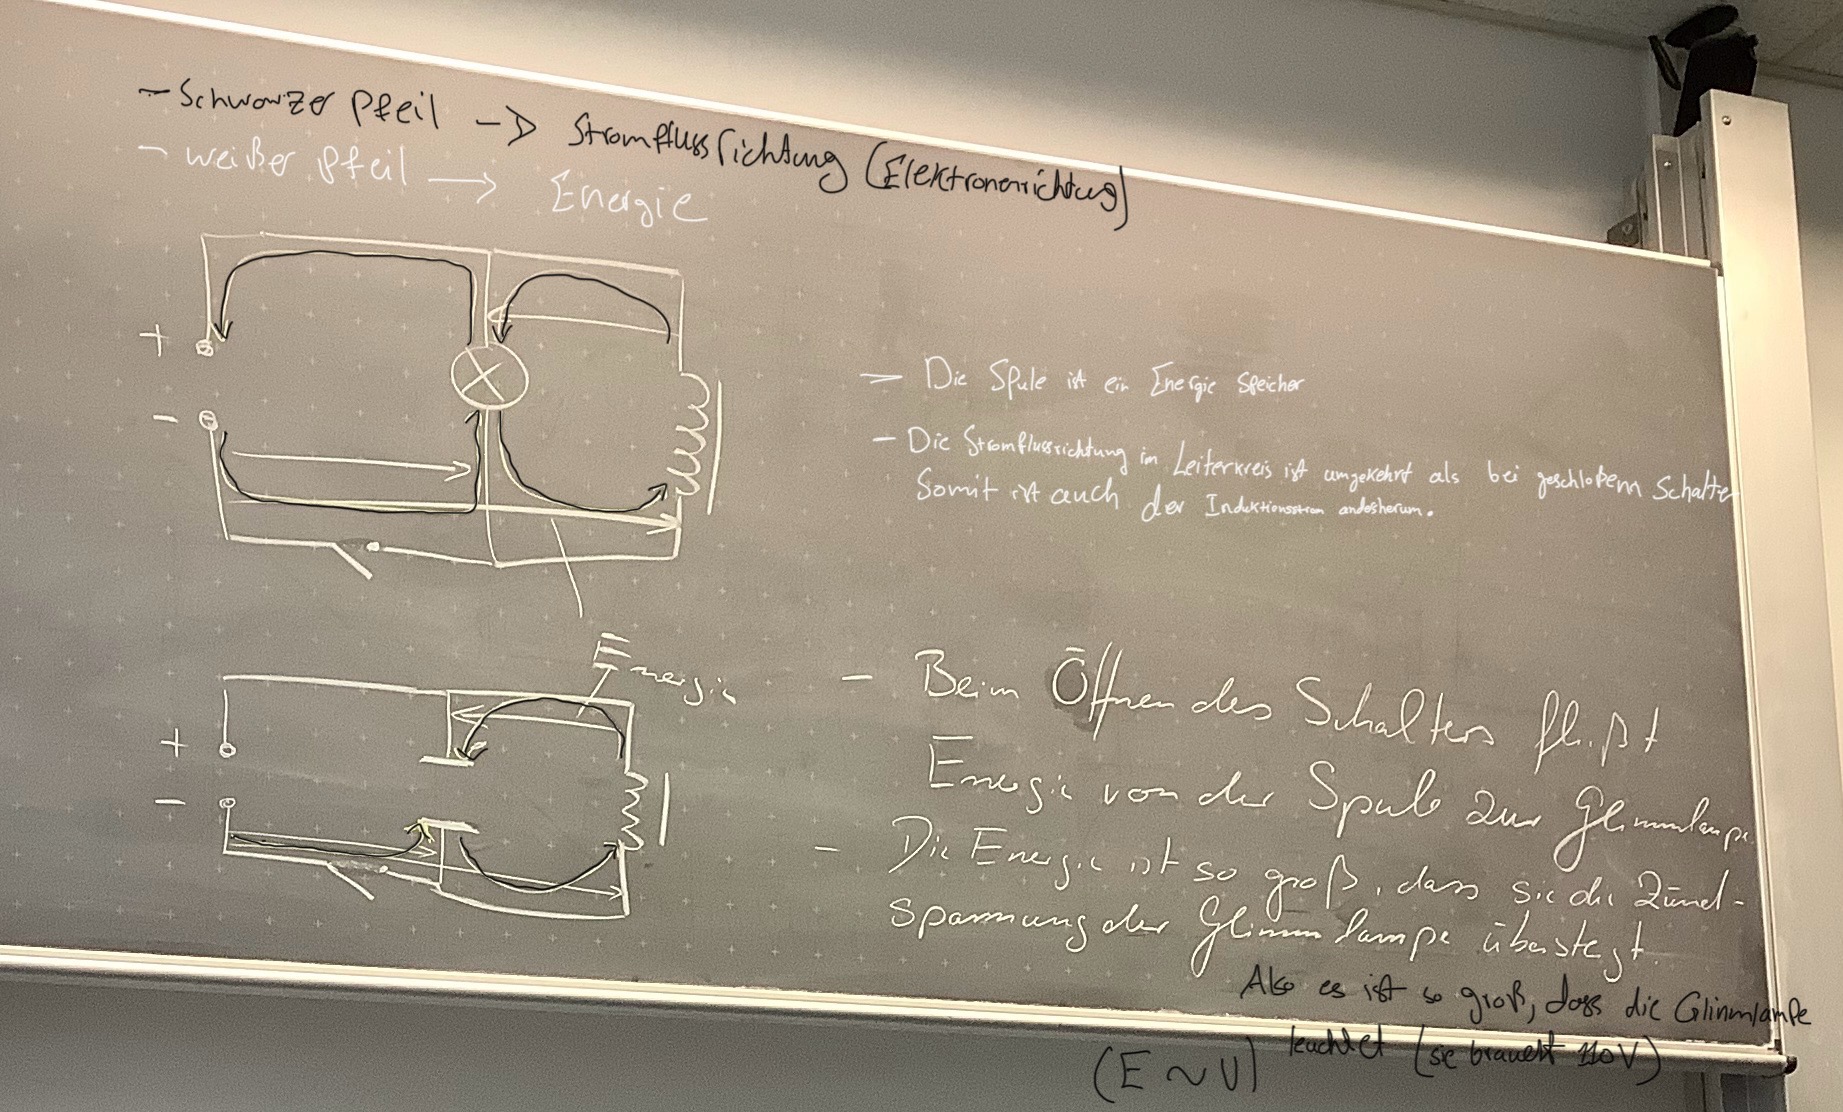 - Schwarzer Pfeil -> Stromflussrichtung (Elektronenrichtung)
- weißer Pfeil -> Energie
+
-
- Die Spule ist ein Energie speicher
- Die Stromflussrichtung im Leiterkreis ist umgekehrt als bei geschloßenm Schalter
Somit ist auch der Induktionsstrom andesherum.
Energie
+
-
- Beim Öffnen des Schalters fließt
Energie von der Spule zur Glimmlampe
- Die Energie ist so groß, dass sie die Zünd-
spannung der Glimmlampe übersteigt.
Also es ist so groß, dass die Glimmlampe
leuchtet (sie braucht 110V)
(E ~ U)